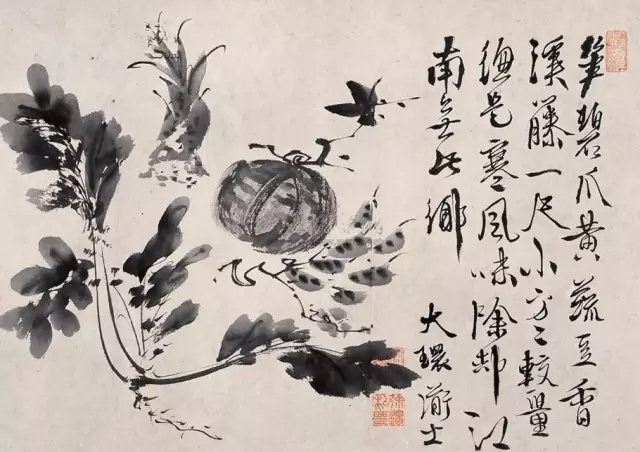 笋碧瓜黄蔬豆香
溪藤一尺小方〻較量
緫是寒風味除却江
南無此鄉
大環衜士